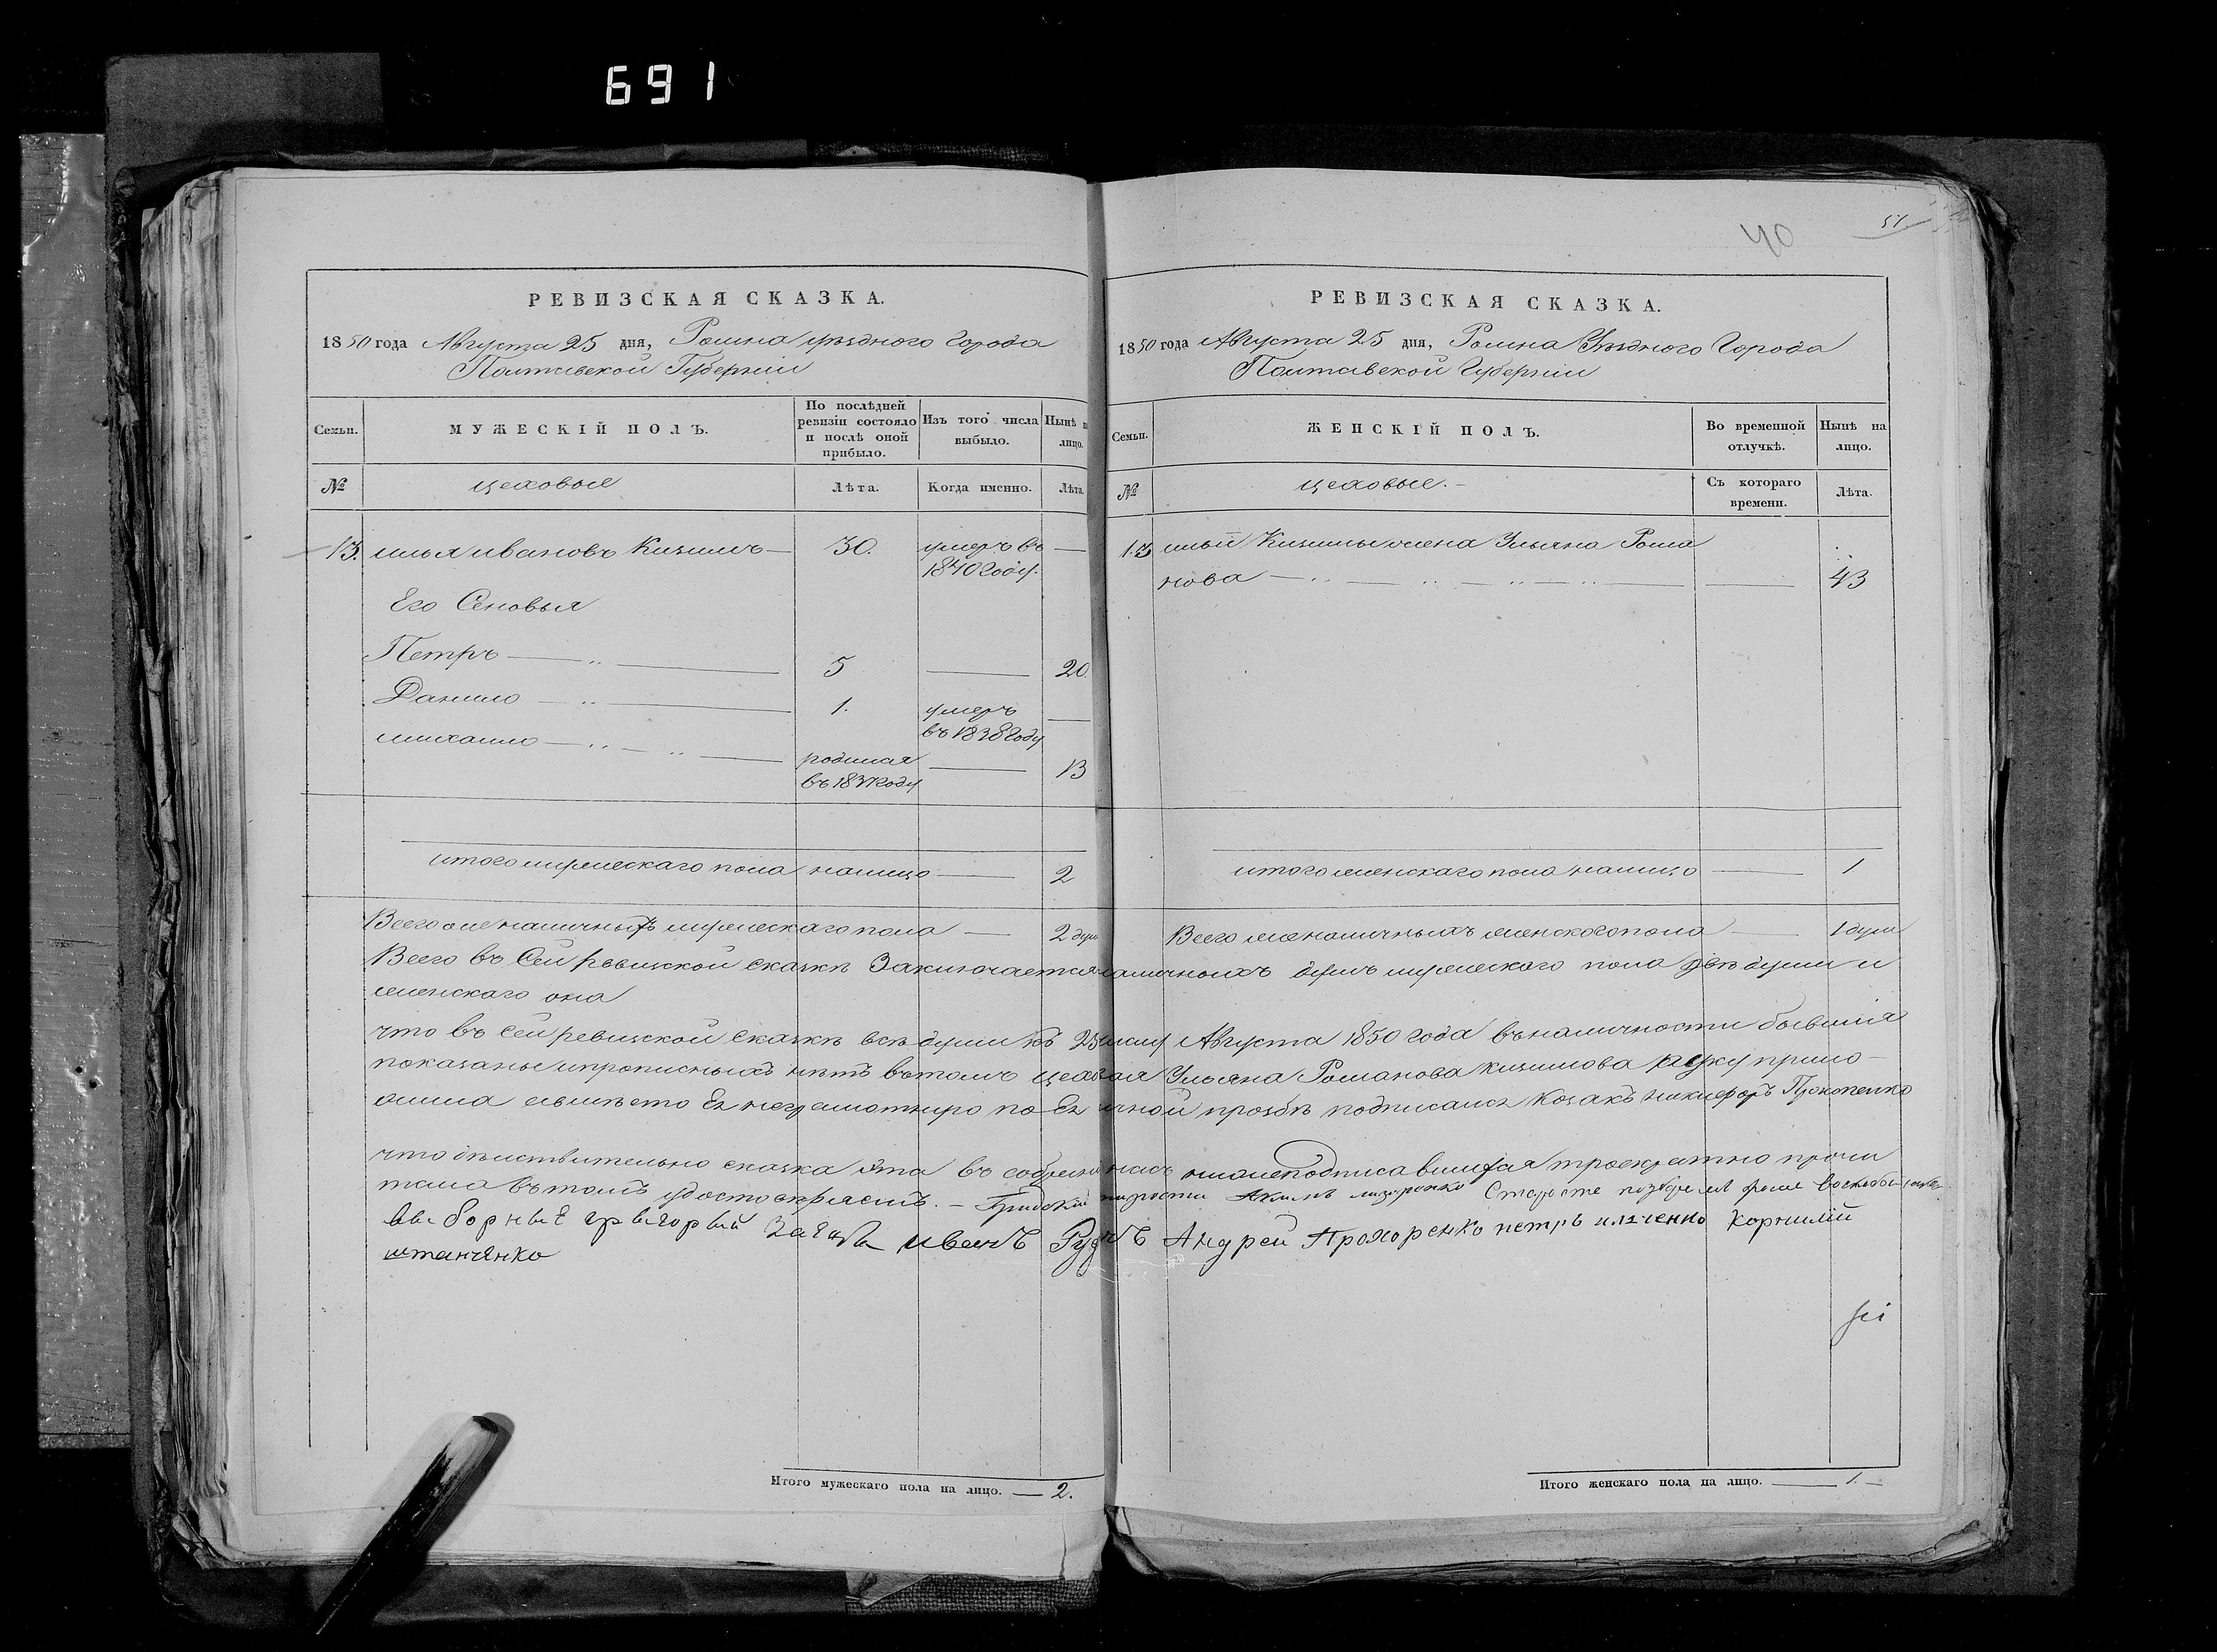 691
40
51
РЕВИЗСКАЯ СКАЗКА.
1850 года Августа 25 дня, Ромна уѣзднаго Города
Полтавской Губерніи
Семьи.
МУЖЕСКІЙ ПОЛЪ.
По послѣдней ревизіи состояло и послѣ оной прибыло.
Изъ того числа выбыло.
Нынѣ на лицо.
№
цеховые
Лѣта.
Когда именно.
Лѣта.
13. илья ивановъ Кизимъ — 30. умеръ въ —
1840 Году.
Его Сеновья
Петръ — 5 — 20.
Данило — 1. умеръ —
въ 1838 Году
михайло — родился — 13
въ 1837 Году
итого мужескаго пола налицо — 2
Всего же наличныхъ мужескаго пола — 2 души
РЕВИЗСКАЯ СКАЗКА.
1850 года Августа 25 дня, Ромна Уѣзднаго Города
Полтавской Губерніи
Семьи.
ЖЕНСКІЙ ПОЛЪ.
Во временной отлучкѣ.
Нынѣ на лицо.
№
цеховые. -
Съ котораго времени.
Лѣта.
13 ильи Кизимы жена Ульяна Рома
нова — — 43
итого женскаго пола налицо — 1
Всего же наличныхъ женского пола — 1 душа
Всего въ Сей ревизской сказкѣ Заключается наличныхъ душъ мужеского пола двѣ души и
женскаго одна
что въ сей ревизской сказкѣ всѣ души къ 25 числу Августа 1850 года въ наличности бывшія
показаны и прописныхъ нѣтъ въ томъ цеховая Ульяна Романова Кизимова руку прило-
жила а вместо Ея неграмотную по Ея личной прозбѣ подписался Козакъ Никифоръ Прокопенко
что дѣйствительно сказка эта въ собраніи насъ нижеподписавшихся троекратно прочи
тана въ томъ удостовѣряемъ. - Градскій староста Акимъ
выборные григорый Иванъ Руд Андрей Прохоренко петръ Корнилій
штанченко
Итого мужескаго пола на лицо. — 2.
Итого женскаго пола на лицо. — 1. -